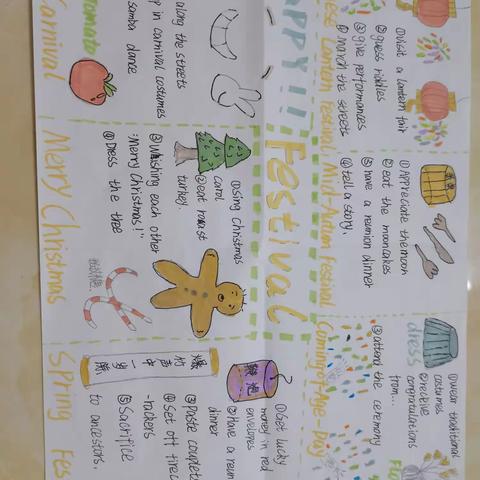 ①Visit a lantern fair
②guess riddles
③give performances
④March the streets
ese Lantern Festival
①Appreciate themoon
②eat the mooncakes
③have a reunion dinner
④tell a story.
Mid-Autumn Festival
dress
①wear traditional
costumes
②receive
congratulations
from...
③attend the ceremony
Coming-of-Age-Day
APPY!!!
Festival
along the streets
p in carnival costumes
samba dance
Tomato
Carnival
①sing Christmas
carol
②eat roast
turkey.
③Wishing each other
:Merry Christmas!"
④Dress the tree
Merry Christmas
①Get lucky
money in red
envelopes
②Have a reun
dinner
③Paste couplets
④Set off firec
-rackers
⑤Sacrifice
to ancestors.
鞭炮
爆竹声中一岁除
Spring Fes